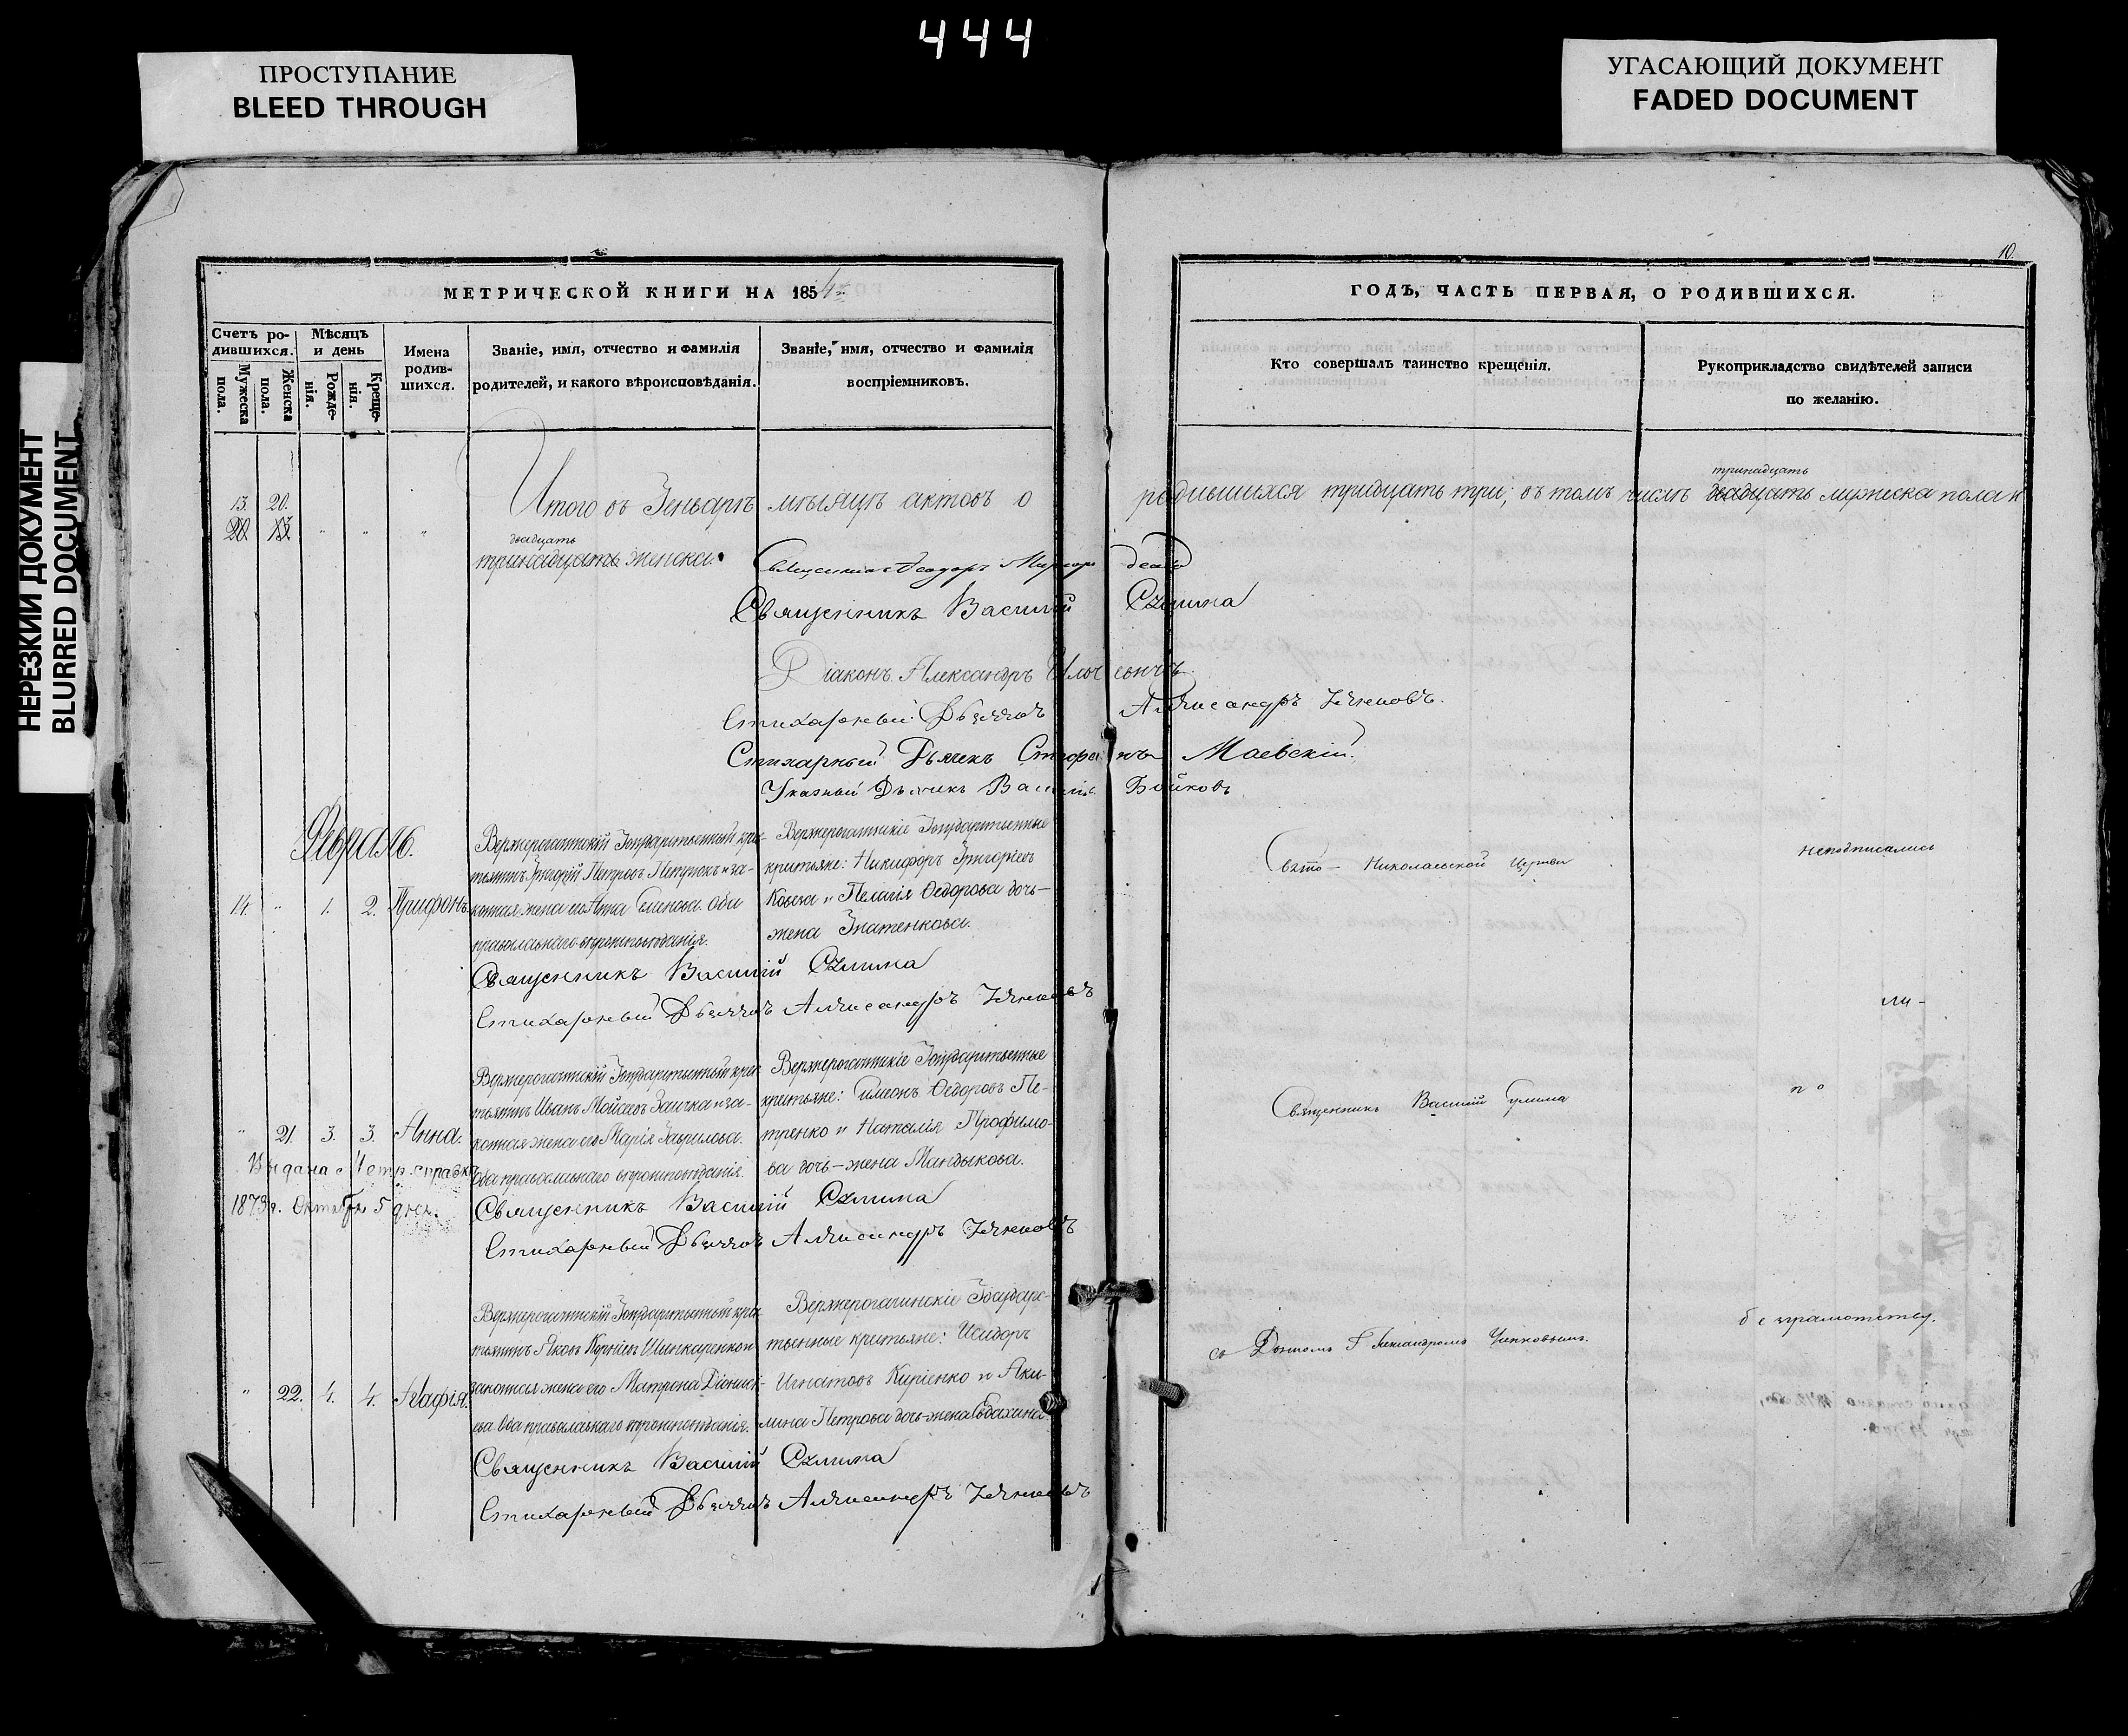 444
ПРОСТУПАНИЕ
BLEED THROUGH
УГАСАЮЩИЙ ДОКУМЕНТ
FADED DOCUMENT
НЕРЕЗКИЙ ДОКУМЕНТ
BLURRED DOCUMENT
10.
МЕТРИЧЕСКОЙ КНИГИ НА 1854
ГОДЪ, ЧАСТЬ ПЕРВАЯ, О РОДИВШИХСЯ.
Счетъ ро-
дившихся.
Мужеска
пола.
Женска
пола.
Мѣсяцъ
и день
Рожде-
нія.
Креще-
нія.
Имена
родив-
шихся.
Званіе, имя, отчество и фамилія
родителей, и какого вѣроисповѣданія.
Званіе, имя, отчество и фамилія
воспріемниковъ.
Кто совершалъ таинство крещенія.
Рукоприкладство свидѣтелей записи
по желанію.
тринадцать
13. 20. Итого въ Генварѣ мѣсяцѣ актовъ о родившихся тридцать три, въ томъ числѣ двадцать мужеска пола и
20. 13.
двадцать
тринадцать женска.
Священникъ Василій Сулима
Діаконъ Александръ
Стихарный Дьячокъ Александръ
Стихарный Дьячекъ Стефанъ Маевскій.
Указный Дьячекъ Василій Бойковъ
Февраль.
14. " 1. 2. Трифонъ.
Верхнерогачинскій Государственный крес-
тьянинъ Григорій Петровъ и за-
конная жена его Анна Оба
православнаго вѣроисповѣданія.
Верхнерогачинскіе Государственные
крестьяне: Никифоръ Григоріевъ
и Пелагія Ѳедорова дочь-
жена Игнатенкова.
Священникъ Василій Сулима
Стихарный Дьячокъ Александръ
Свято-Николаевской Церкви
неподписались
" 21. 3. 3. Анна.
Верхнерогачинскій Государственный крес-
тьянинъ Иванъ Мойсеевъ Заичка и за-
конная жена его Марія Гаврилова.
Оба православнаго вѣроисповѣданія.
Верхнерогачинскіе Государственные
крестьяне: Симеонъ Ѳедоровъ Пе-
тренко и Наталія Трофимо-
ва дочь-жена Мандыкова.
Выдана Метр. справка
1873 г. Октября 5 дня.
Священникъ Василій Сулима
Стихарный Дьячокъ Александръ
Священникъ Василій Сулима
ли-
по
" 22. 4. 4. Агафія.
Верхнерогачинскій Государственный крес-
тьянинъ Яковъ Корнѣевъ Шинкаренко и
законная жена его Матрона Діонисі-
ева. Оба православнаго вѣроисповѣданія.
Верхнерогачинскіе Государс-
твенные крестьяне: Исидоръ
Игнатовъ Киріенко и Аки-
лина Петрова дочь-жена
Священникъ Василій Сулима
Стихарный Дьячокъ Александръ
съ Дьячкомъ Александромъ
безграмотству.